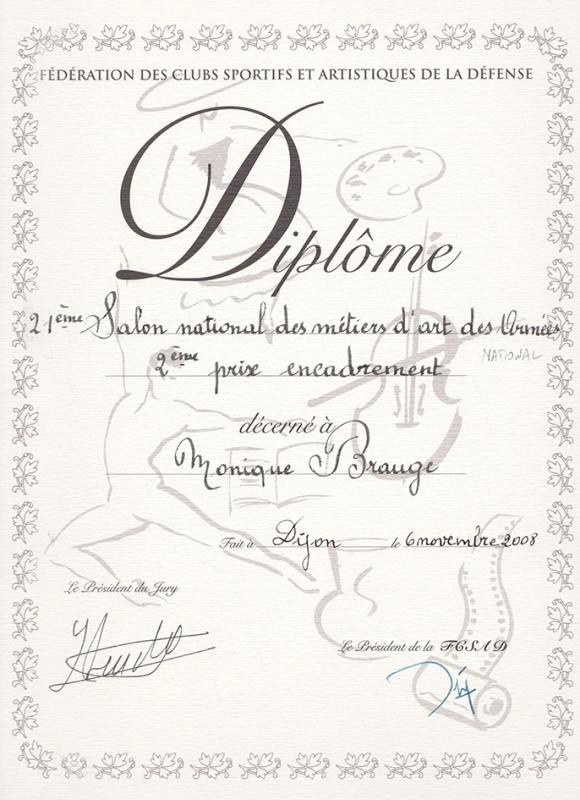 FÉDÉRATION DES CLUBS SPORTIFS ET ARTISTIQUES DE LA DÉFENSE
Diplôme
21ème Salon national des métiers d'art des Armées
NATIONAL
2ème prix encadrement
décerné à
Monique Brauge
Fait à Dijon le 6 novembre 2008
Le Président du Jury
Le Président de la FCSAD